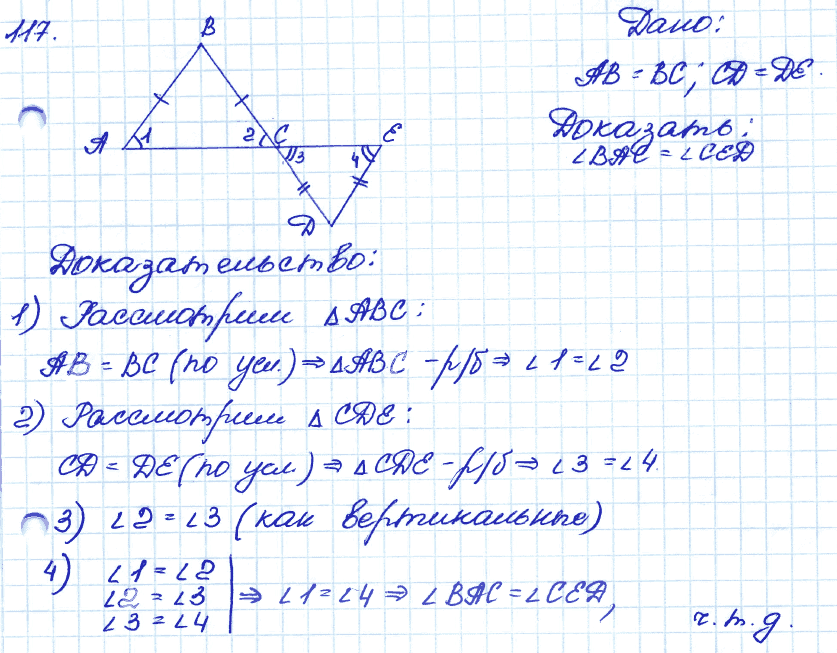 117.
B
A 1 2 C 3 4 E
D
Дано:
AB = BC; CD = DE.
Доказать:
∠BAC = ∠CED
Доказательство:
1) Рассмотрим △ABC:
AB = BC (по усл.) ⇒ △ABC - р/б ⇒ ∠1 = ∠2
2) Рассмотрим △CDE:
CD = DE (по усл.) ⇒ △CDE - р/б ⇒ ∠3 = ∠4.
3) ∠2 = ∠3 (как вертикальные)
4) ∠1 = ∠2
∠2 = ∠3 ⇒ ∠1 = ∠4 ⇒ ∠BAC = ∠CED,
∠3 = ∠4
ч.т.д.